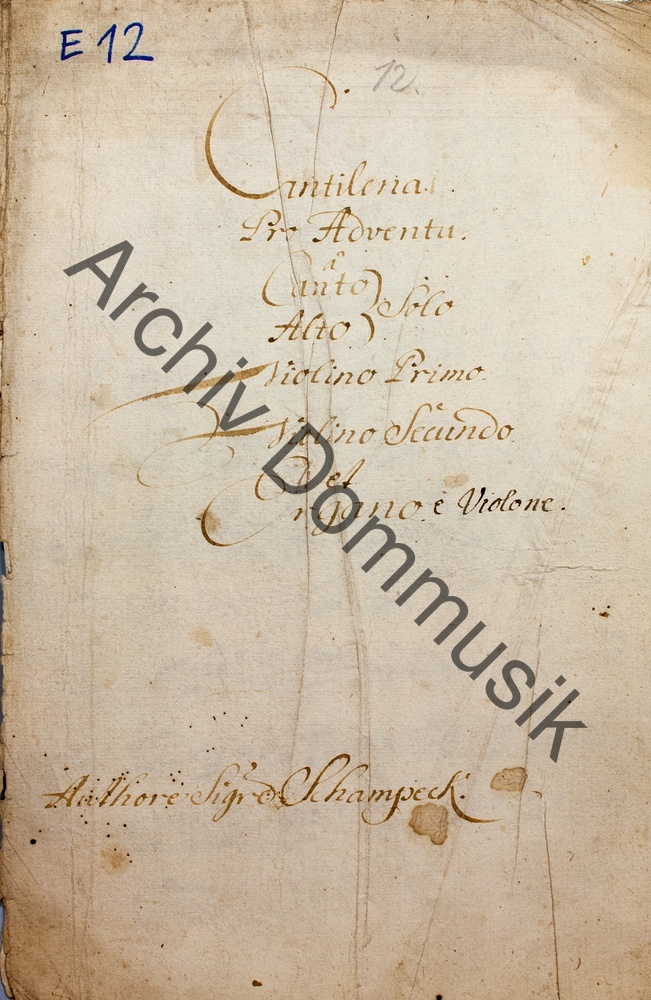 E 12
12.
Cantilena.
Pro Adventu.
a
Canto) Solo
Alto)
Violino Primo.
Violino Secundo.
et
Organo. è Violone.
Authore Sigre Schampeck.
Archiv Dommusik